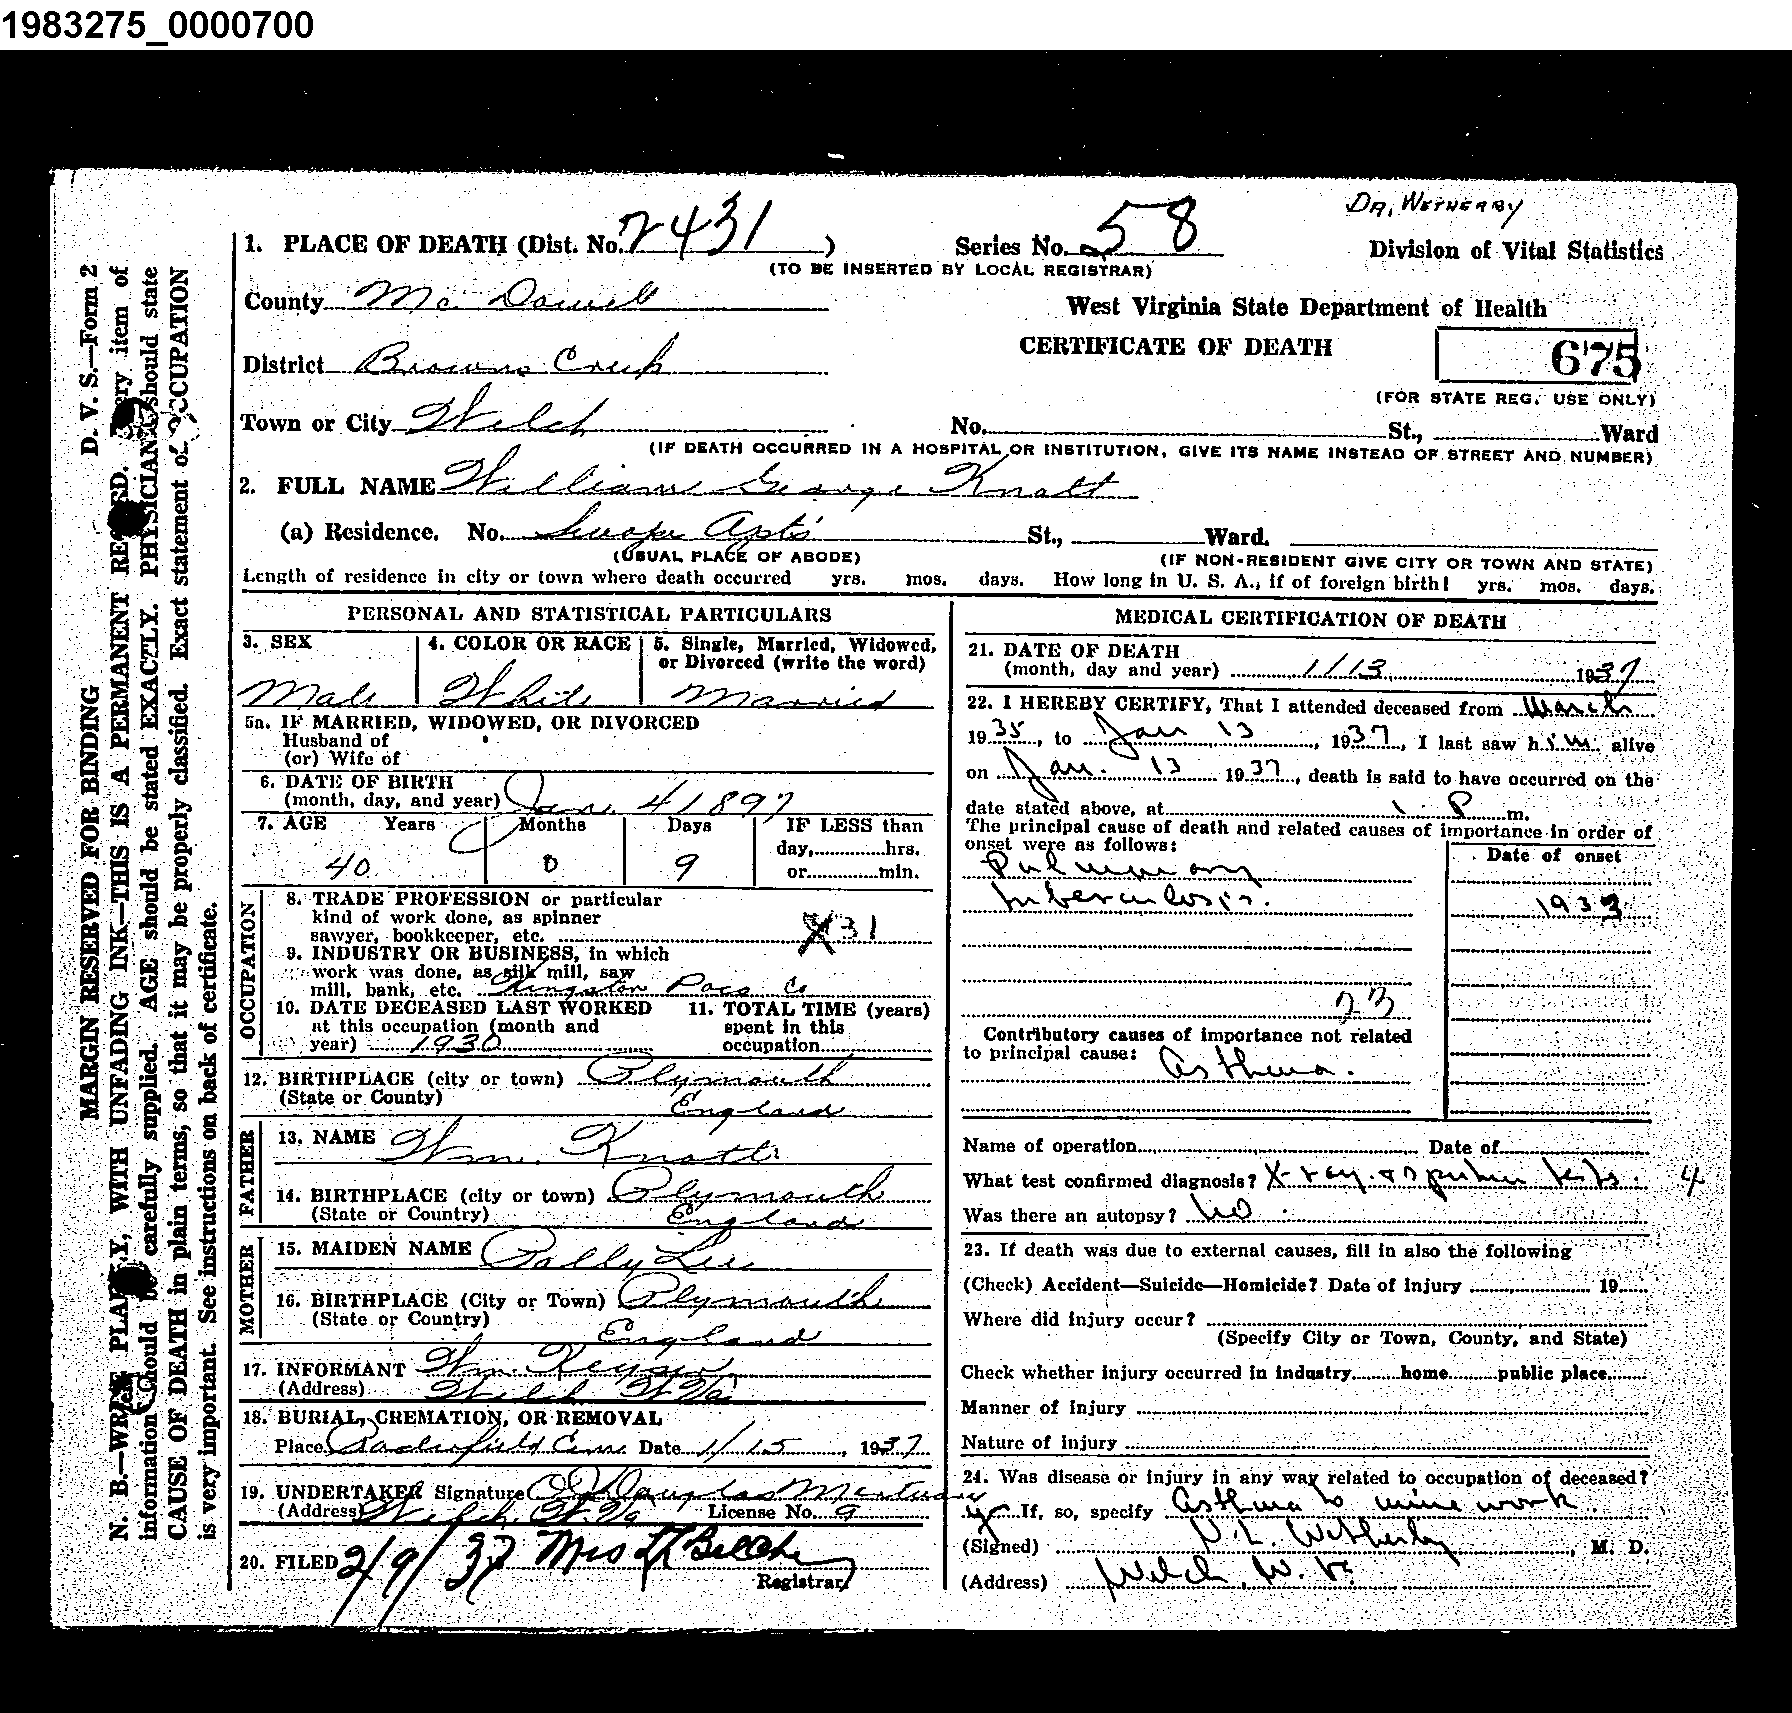 1983275_0000700
Dr. Wetherby
1. PLACE OF DEATH (Dist. No. 2431 )
Series No. 58
Division of Vital Statistics
(TO BE INSERTED BY LOCAL REGISTRAR)
County McDowell
West Virginia State Department of Health
CERTIFICATE OF DEATH
675
(FOR STATE REG. USE ONLY)
District Browns Creek
Town or City Welch
No. St., Ward
(IF DEATH OCCURRED IN A HOSPITAL OR INSTITUTION, GIVE ITS NAME INSTEAD OF STREET AND NUMBER)
2. FULL NAME William George Knott
(a) Residence. No. Swope Apts St., Ward.
(USUAL PLACE OF ABODE) (IF NON-RESIDENT GIVE CITY OR TOWN AND STATE)
Length of residence in city or town where death occurred yrs. mos. days. How long in U. S. A., if of foreign birth! yrs. mos. days.
PERSONAL AND STATISTICAL PARTICULARS
3. SEX
Male
4. COLOR OR RACE
White
5. Single, Married, Widowed,
or Divorced (write the word)
Married
5a. IF MARRIED, WIDOWED, OR DIVORCED
Husband of
(or) Wife of
6. DATE OF BIRTH
(month, day, and year) Jan. 4 1897
7. AGE Years Months Days IF LESS than
day, hrs.
or min.
40 0 9
OCCUPATION
8. TRADE PROFESSION or particular
kind of work done, as spinner
sawyer, bookkeeper, etc. 31
9. INDUSTRY OR BUSINESS, in which
work was done, as silk mill, saw
mill, bank, etc. Kingston Poca Co
10. DATE DECEASED LAST WORKED
at this occupation (month and
year) 1930
11. TOTAL TIME (years)
spent in this
occupation
12. BIRTHPLACE (city or town) Plymouth
(State or County) England
FATHER
13. NAME Wm. Knott
14. BIRTHPLACE (city or town) Plymouth
(State or Country) England
MOTHER
15. MAIDEN NAME Polly Lee
16. BIRTHPLACE (City or Town) Plymouth
(State or Country) England
17. INFORMANT Wm. Keyser
(Address) Welch W. Va
18. BURIAL, CREMATION, OR REMOVAL
Place Roderfield Cem. Date 1/15, 1937
19. UNDERTAKER Signature Douglas Mortuary
(Address) Welch, W. Va License No. 9
20. FILED 2/9/37 Mrs Belcher
Registrar
MEDICAL CERTIFICATION OF DEATH
21. DATE OF DEATH
(month, day and year) 1/13 1937
22. I HEREBY CERTIFY, That I attended deceased from March
1935, to Jan 13, 1937, I last saw him alive
on Jan. 13 1937, death is said to have occurred on the
date stated above, at 1 P m.
The principal cause of death and related causes of importance in order of
onset were as follows:
Date of onset
Pulmonary
tuberculosis. 1933
23
Contributory causes of importance not related
to principal cause:
Asthma.
Name of operation Date of
What test confirmed diagnosis? X-ray & sputum tests. 4
Was there an autopsy? No.
23. If death was due to external causes, fill in also the following
(Check) Accident—Suicide—Homicide? Date of injury 19
Where did injury occur?
(Specify City or Town, County, and State)
Check whether injury occurred in industry home public place
Manner of injury
Nature of injury
24. Was disease or injury in any way related to occupation of deceased?
yes If, so, specify Asthma to mine work.
(Signed) Wetherby, M. D.
(Address) Welch, W. Va.
D. V. S.—Form 2
MARGIN RESERVED FOR BINDING
N. B.—WRITE PLAINLY, WITH UNFADING INK—THIS IS A PERMANENT RECORD. Every item of
information should be carefully supplied. AGE should be stated EXACTLY. PHYSICIANS should state
CAUSE OF DEATH in plain terms, so that it may be properly classified. Exact statement of OCCUPATION
is very important. See instructions on back of certificate.